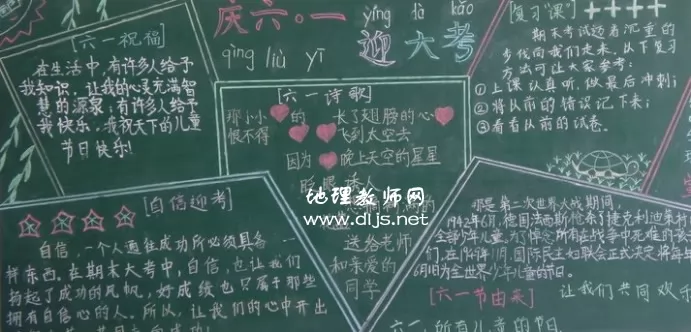 庆六·一
qìng liù yī
yíng dà kǎo
迎大考
[六一祝福]
在生活中,有许多人给予
我知识,让我的心灵充满智
慧的源泉;有许多人给予
我快乐,我祝天下的儿童
节日快乐!
[六一诗歌]
那小小的 长了翅膀的心
恨不得 飞到太空去
因为 晚上天空的星星
眨眼
送给老师
和亲爱的
同学
[复习“课”]
期末考试迈着沉重的
步伐向我们走来,从下复习
方法可让大家参考:
①上课认真听,做最后冲刺;
②将从前的错误记下来;
③看看从前的试卷。
[自信迎考]
自信,一个人通往成功所必须具备
样东西。在期末大考中,自信,也让我们
扬起了成功的风帆,好成绩也只属于那些
拥有自信心的人。所以,让我们的心中开出
那是第二次世界大战期间,
1942年6月,德国法西斯枪杀了捷克利迪策村
全部少年儿童。为了悼念所有在战争中死难的孩
们,在1949年11月,国际民主妇联会正式决定将每年
6月1日为全世界少年儿童的节日。
[六一节由来]
让我们共同欢乐
六一,所有儿童的节日
地理教师网
www.dljs.net